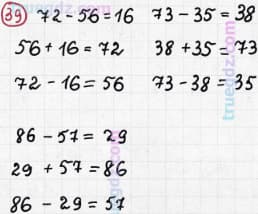 39 72 - 56 = 16 73 - 35 = 38
56 + 16 = 72 38 + 35 = 73
72 - 16 = 56 73 - 38 = 35
86 - 57 = 29
29 + 57 = 86
86 - 29 = 57
truegdz.com